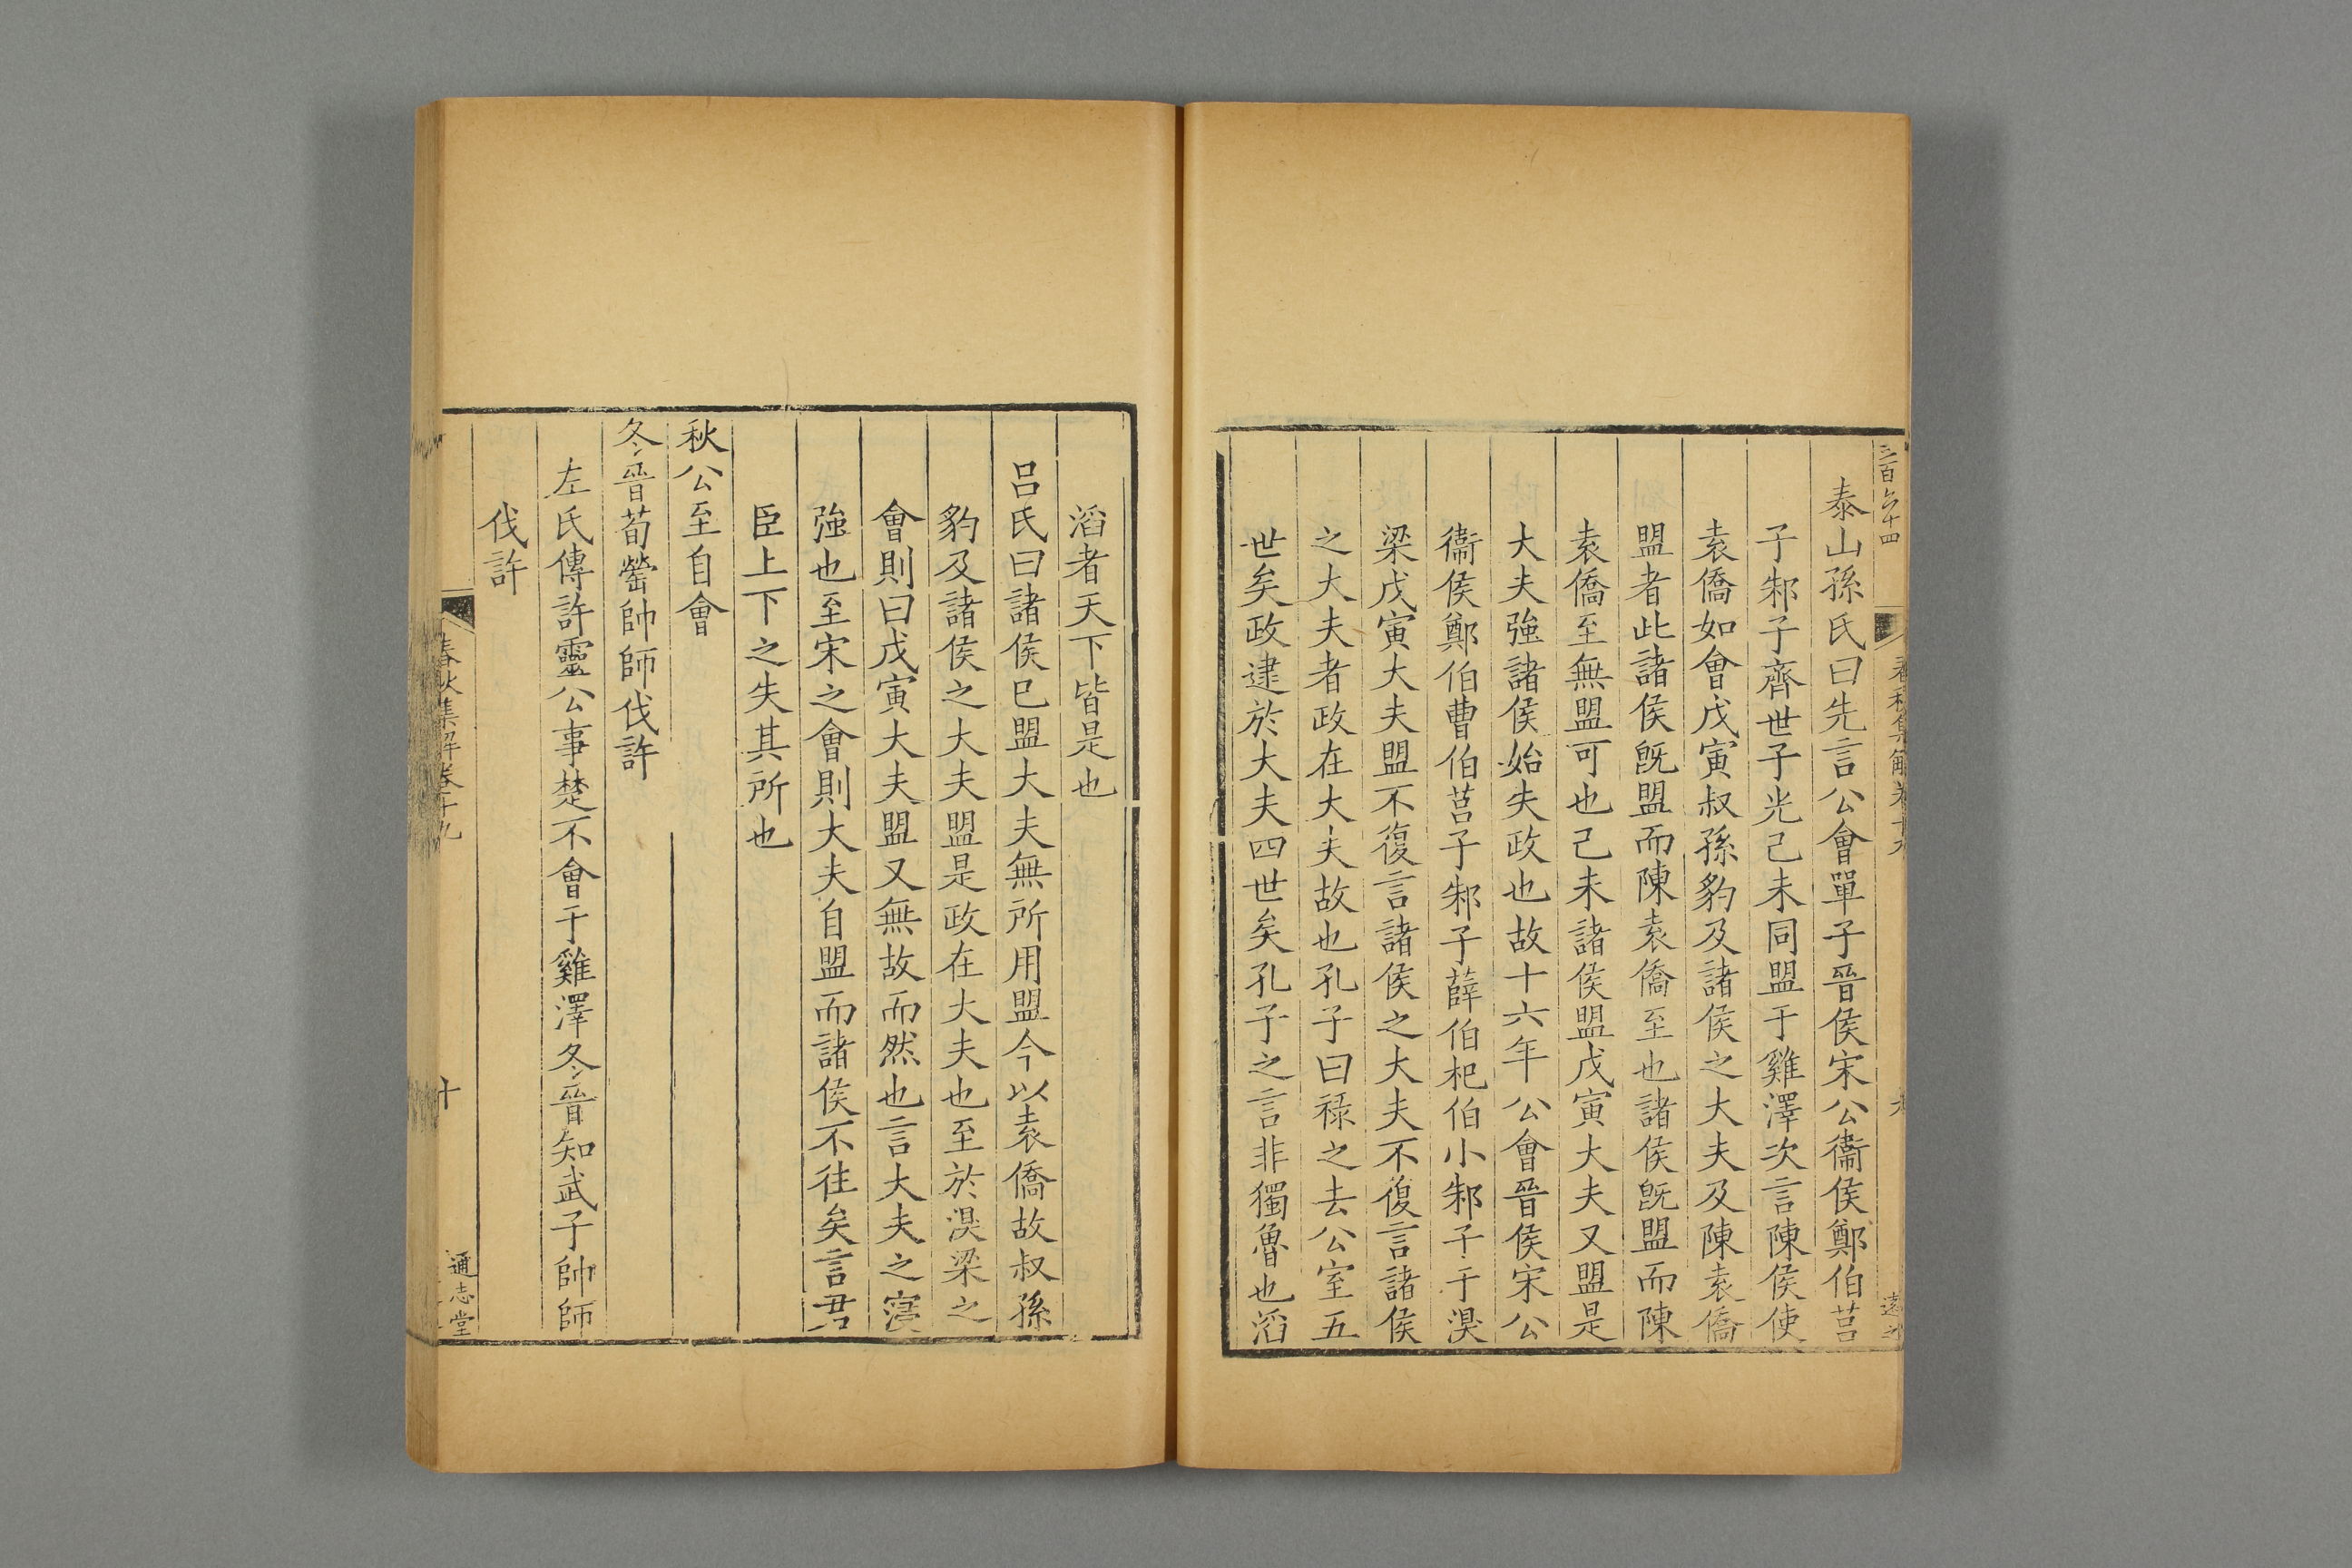 三百六十四
春秋集解卷十九
九
遠之
泰山孫氏曰先言公會單子晉侯宋公衞侯鄭伯莒
子邾子齊世子光己未同盟于雞澤次言陳侯使
袁僑如會戊寅叔孫豹及諸侯之大夫及陳袁僑
盟者此諸侯旣盟而陳袁僑至也諸侯旣盟而陳
袁僑至無盟可也己未諸侯盟戊寅大夫又盟是
大夫強諸侯始失政也故十六年公會晉侯宋公
衞侯鄭伯曹伯莒子邾子薛伯杞伯小邾子于湨
梁戊寅大夫盟不復言諸侯之大夫不復言諸侯
之大夫者政在大夫故也孔子曰祿之去公室五
世矣政逮於大夫四世矣孔子之言非獨魯也滔
滔者天下皆是也
呂氏曰諸侯巳盟大夫無所用盟今以袁僑故叔孫
豹及諸侯之大夫盟是政在大夫也至於湨梁之
會則曰戊寅大夫盟又無故而然也言大夫之寖
強也至宋之會則大夫自盟而諸侯不往矣言君
臣上下之失其所也
秋公至自會
冬晉荀罃帥師伐許
左氏傳許靈公事楚不會于雞澤冬晉知武子帥師
伐許
春秋集解卷十九
十
通志堂